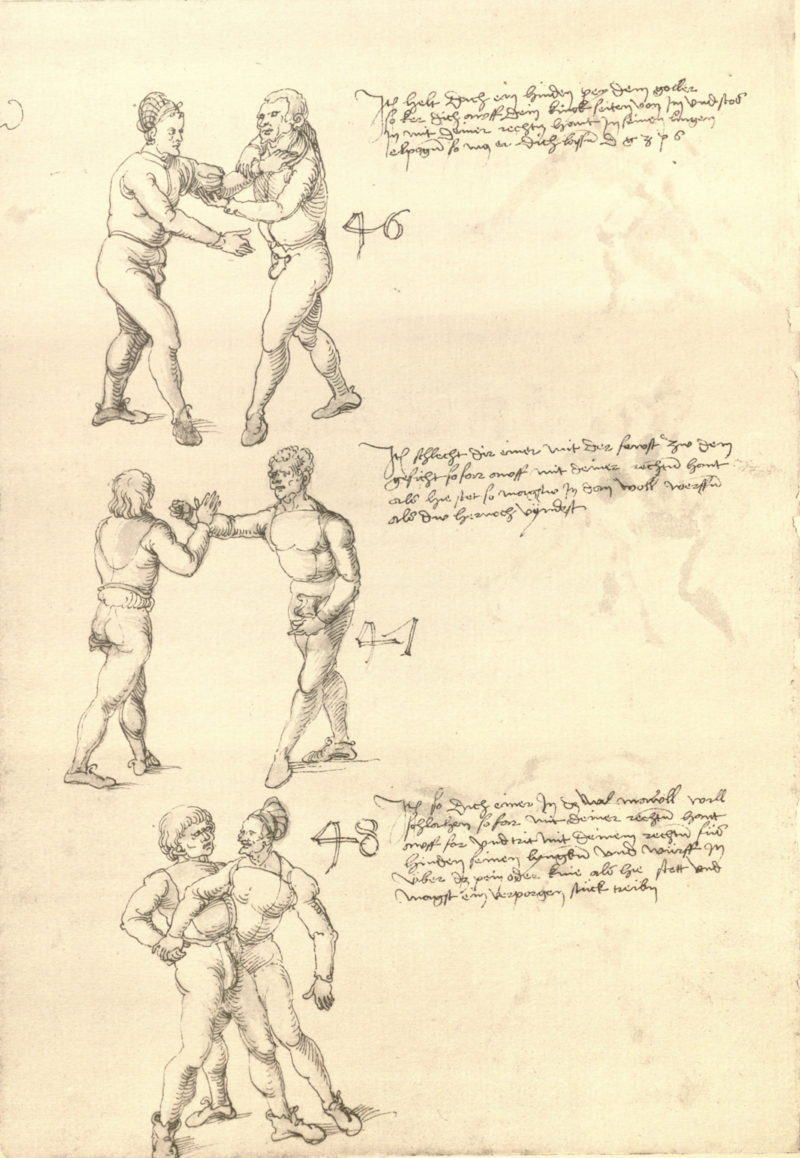 Itm helt dich ein hinden pey dem goller
so ker dich awff dein linck seiten von Im vnd stos
In mit deiner rechtn hant In seinen lingen
elpogn so mus er dich lossn
46
Itm schlecht dir einer mit der fawst zw dem
gesicht so far awff mit deiner rechtn hant
als hie stet so magstw In den woll werffn
als dw hernoch vyndest
47
Itm so dich einer In das mawll woll
schlachen so far mit deiner rechtn hant
awff for vnd trit mit deinem rechtn fus
hinden seinen lyngkn vnd würff In
vber das pein oder knie als hie stett vnd
magst ein verporgen stück treibn
48